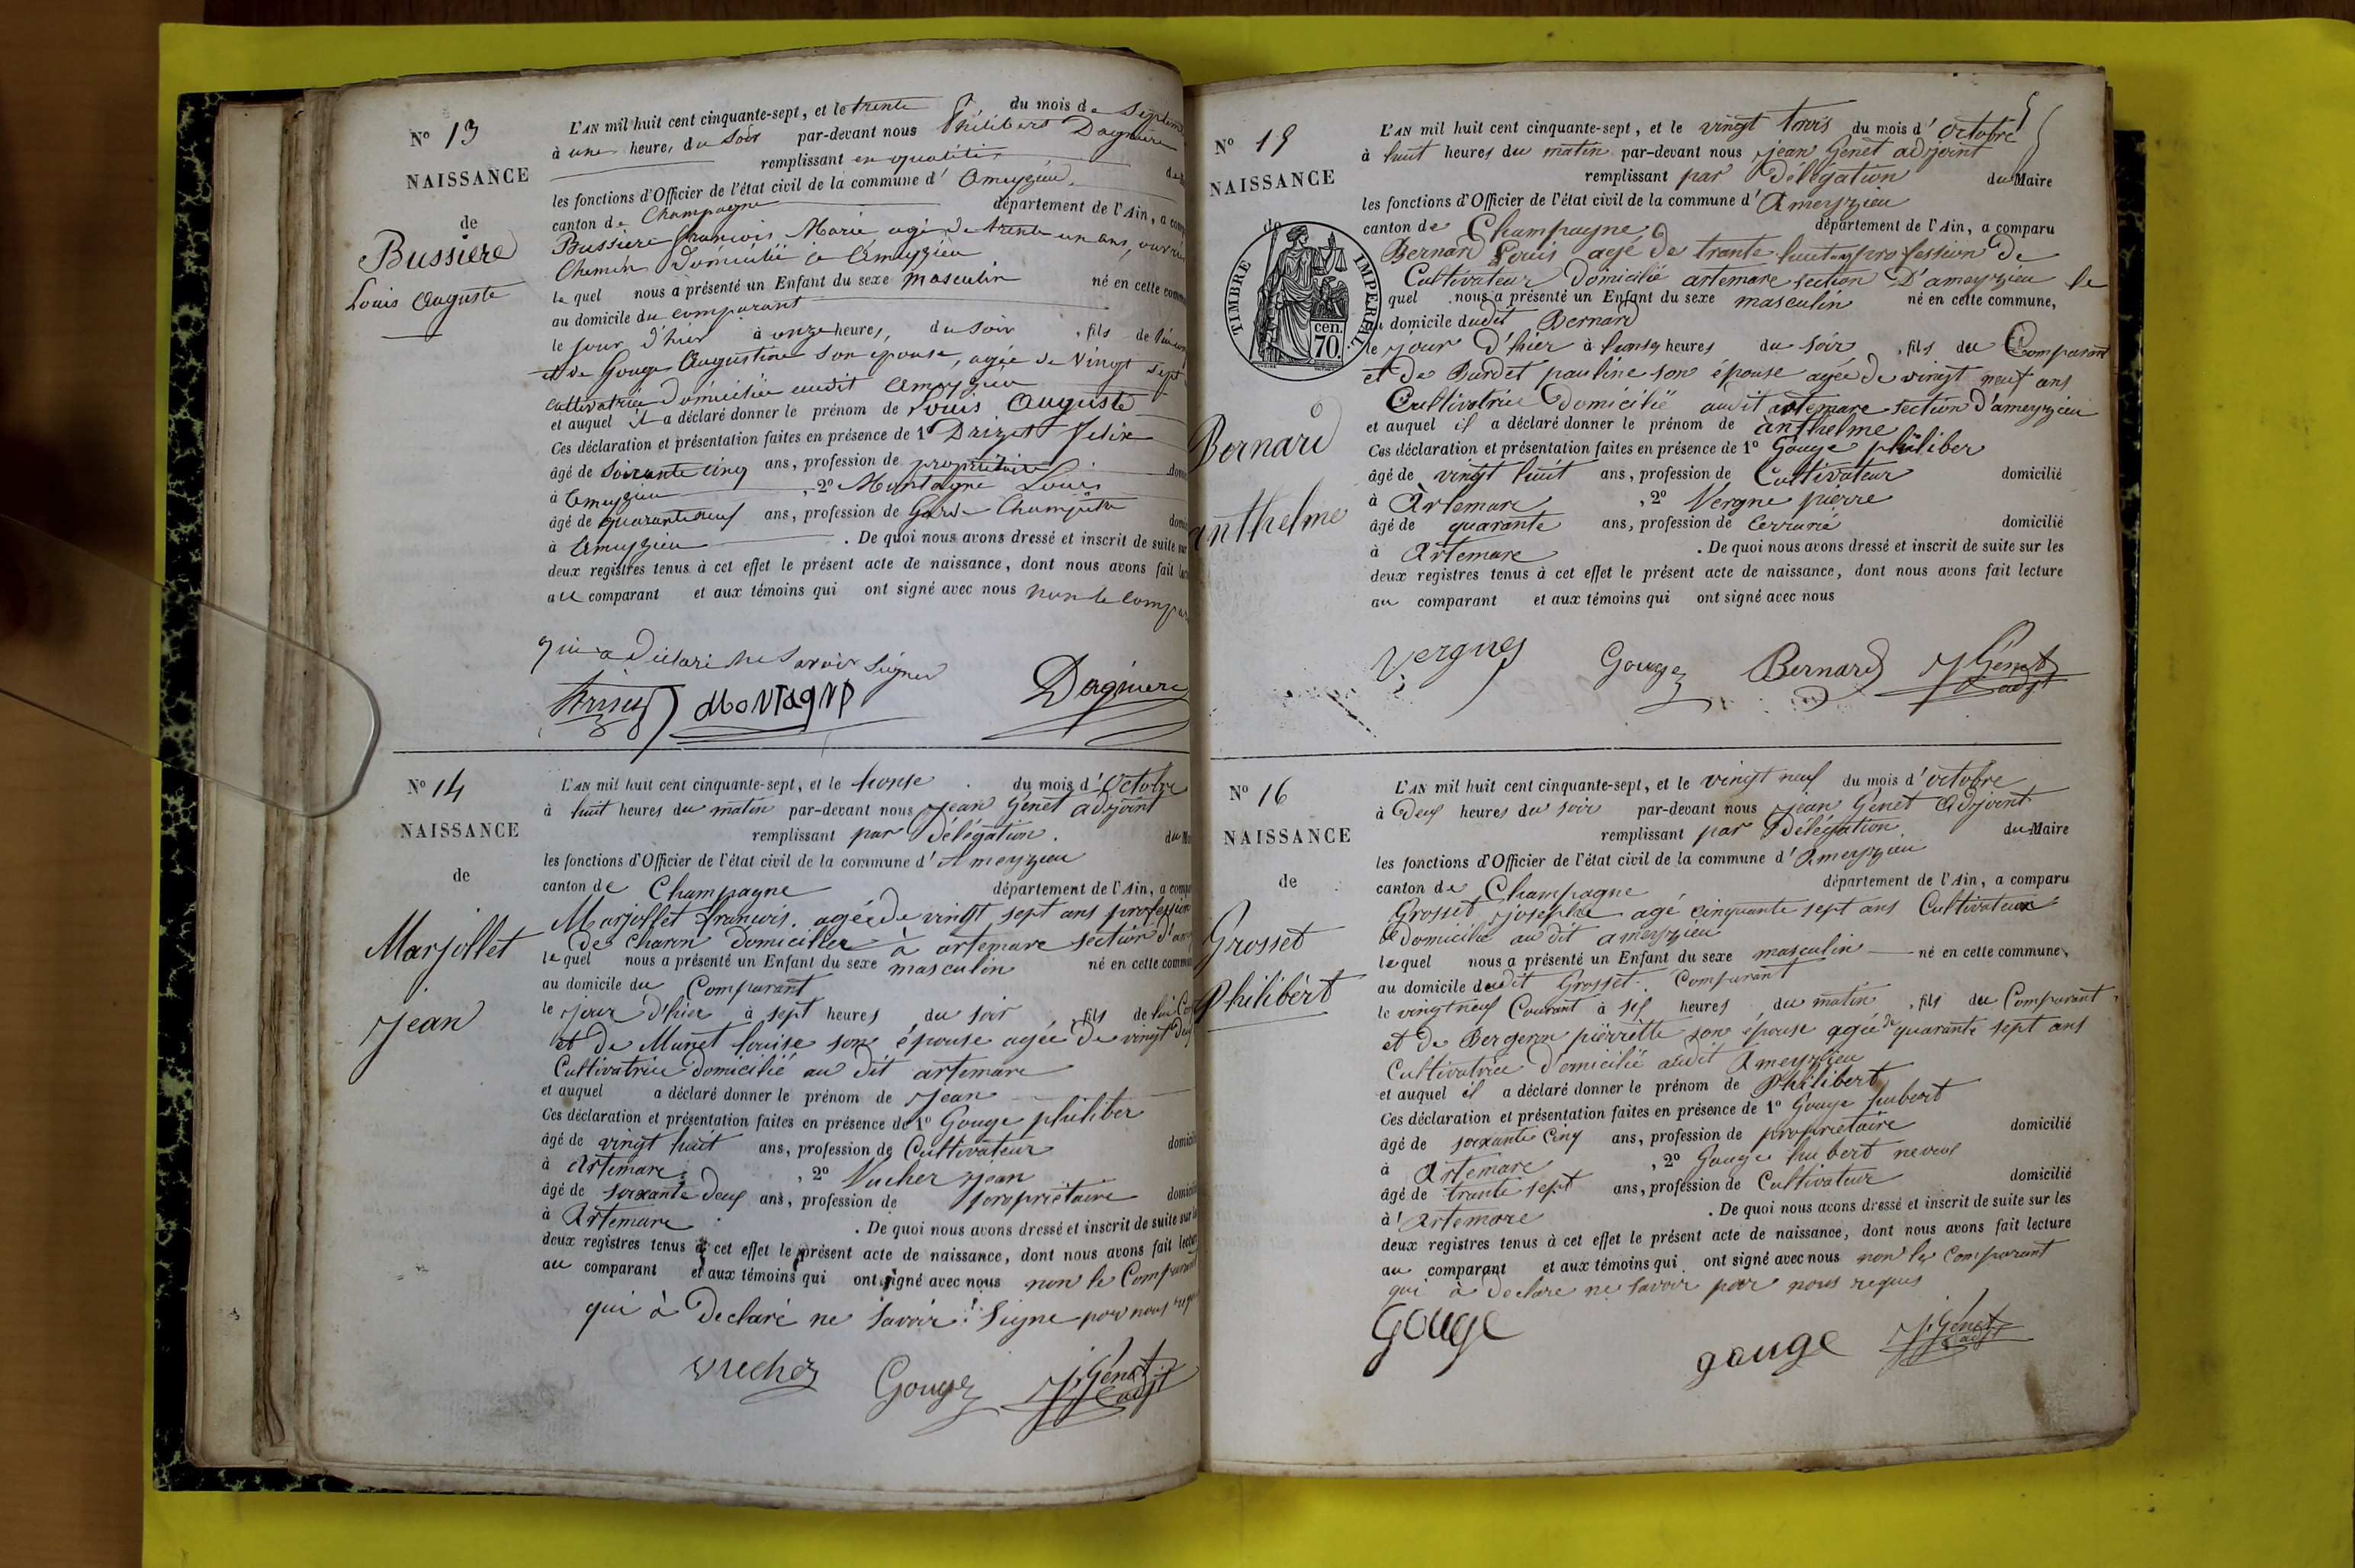 N° 13
NAISSANCE
de
Bussiere
Louis Auguste
L'AN mil huit cent cinquante-sept, et le trente du mois de Septem
à une heures du soir par-devant nous Philibert Dagniere
remplissant en qualité
les fonctions d'Officier de l'état civil de la commune d' Ameyzieu
canton de Champagne département de l'Ain, a comp
Bussiere francois Marie agé de trente un ans, ouvrie
Chemin Domicilié à Ameyzieu
le quel nous a présenté un Enfant du sexe masculin né en cette comm
au domicile du comparant
le jour d'hier à onze heures, du soir, fils de
et de Gouge Augustine son épouse, agée de Vingt sept
cultivatrice Domiciliée audit Ameyzieu
et auquel il a déclaré donner le prénom de Louis Auguste
Ces déclaration et présentation faites en présence de 1° Drizet Felix
âgé de Soixante cinq ans, profession de propriétaire dom
à Ameyzieu , 2° Montagne Louis
âgé de quarante neuf ans, profession de Garde Champêtre domi
à Ameyzieu . De quoi nous avons dressé et inscrit de suite sur
deux registres tenus à cet effet le présent acte de naissance, dont nous avons fait lec
au comparant et aux témoins qui ont signé avec nous non le compar
qui a Déclaré ne Savoir Signer
Montagne
Dagniere
N° 14
NAISSANCE
de
Marjollet
Jean
L'AN mil huit cent cinquante-sept, et le honse du mois d'Octobre
à huit heures du matin par-devant nous Jean Génet adjoint
remplissant par Délégation. du M
les fonctions d'Officier de l'état civil de la commune d' Ameyzieu
canton de Champagne département de l'Ain, a comp
Marjollet francois. agée De vingt sept ans profession
De charon domicilier à artemare section d'am
le quel nous a présenté un Enfant du sexe masculin né en cette commu
au domicile du Comparant
le Jour d'hier à sept heures du soir, fils de lui Co
et de Munet louise son épouse agée De vingt deuf
Cultivatrice domicilié au dit artemare
et auquel a déclaré donner le prénom de Jean
Ces déclaration et présentation faites en présence de 1° Gouge philiber
âgé de vingt huit ans, profession de Cultivateur domicili
à Artemare , 2° Vucher jean
âgé de soixante deuf ans, profession de propriétaire domicil
à Artemare . De quoi nous avons dressé et inscrit de suite sur le
deux registres tenus à cet effet le présent acte de naissance, dont nous avons fait lectur
au comparant et aux témoins qui ont signé avec nous non le Comparant
qui à Declaré ne Savoir Signe pour nous requi
Gouge J. Génet adjt
N° 15
NAISSANCE
de
TIMBRE IMPERIAL
cen.
70.
Bernard
anthelme
L'AN mil huit cent cinquante-sept, et le vingt trois du mois d' octobre
à huit heures du matin par-devant nous jean Génet adjoint
remplissant par Délégation du Maire
les fonctions d'Officier de l'état civil de la commune d' Ameyzieu
canton de Champagne département de l'Ain, a comparu
Bernard Louis agé de trante huit ans profession De
Cultivateur Domicilié artemare section D'ameyzieu le
quel nous a présenté un Enfant du sexe masculin né en cette commune,
au domicile dudit Bernard
le jour d'hier à honse heures du soir, fils du Comparant
et de Burdet pauline son épouse agée de vingt neuf ans
Cultivatrice Domicilié audit artemare section d'ameyzieu
et auquel il a déclaré donner le prénom de anthelme
Ces déclaration et présentation faites en présence de 1° Gouge philiber
âgé de vingt huit ans, profession de Cultivateur domicilié
à Artemare , 2° Vergne pierre
âgé de quarante ans, profession de Cerrurié domicilié
à Artemare . De quoi nous avons dressé et inscrit de suite sur les
deux registres tenus à cet effet le présent acte de naissance, dont nous avons fait lecture
au comparant et aux témoins qui ont signé avec nous
Vergnes Gouge Bernard J Génet adjt
N° 16
NAISSANCE
de
Grosset
Philibert
L'AN mil huit cent cinquante-sept, et le vingt neuf du mois d' octobre
à Deuf heures du soir par-devant nous jean Génet Adjoint
remplissant par Délégation du Maire
les fonctions d'Officier de l'état civil de la commune d' Ameyzieu
canton de Champagne département de l'Ain, a comparu
Grosset Josephe agé cinquante sept ans Cultivateur
domicilié au dit ameyzieu
le quel nous a présenté un Enfant du sexe masculin né en cette commune,
au domicile dudit Grosset Comparant
le vingt neuf Courant à sif heures du matin, fils du Comparant
et de Bergeron pierrette son épouse agée de quarante sept ans
Cultivatrice Domicilié audit Ameyzieu
et auquel il a déclaré donner le prénom de Philibert
Ces déclaration et présentation faites en présence de 1° Gouge hubert
âgé de soixante Cinq ans, profession de propriétaire domicilié
à Artemare , 2° Gouge hubert neveu
âgé de trante sept ans, profession de Cultivateur domicilié
à Artemare . De quoi nous avons dressé et inscrit de suite sur les
deux registres tenus à cet effet le présent acte de naissance, dont nous avons fait lecture
au comparant et aux témoins qui ont signé avec nous non le Comparant
qui à Declare ne savoir par nous requis
Gouge gouge J. Génet adjt